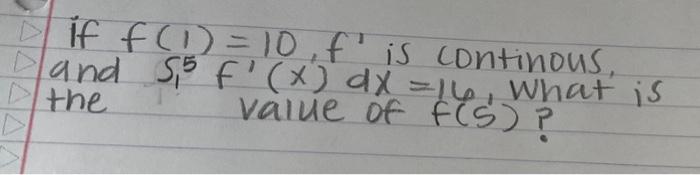 if f(1) = 10, f' is continous,
and ∫₁⁵ f'(x) dx = 16, what is
the value of f(5)?